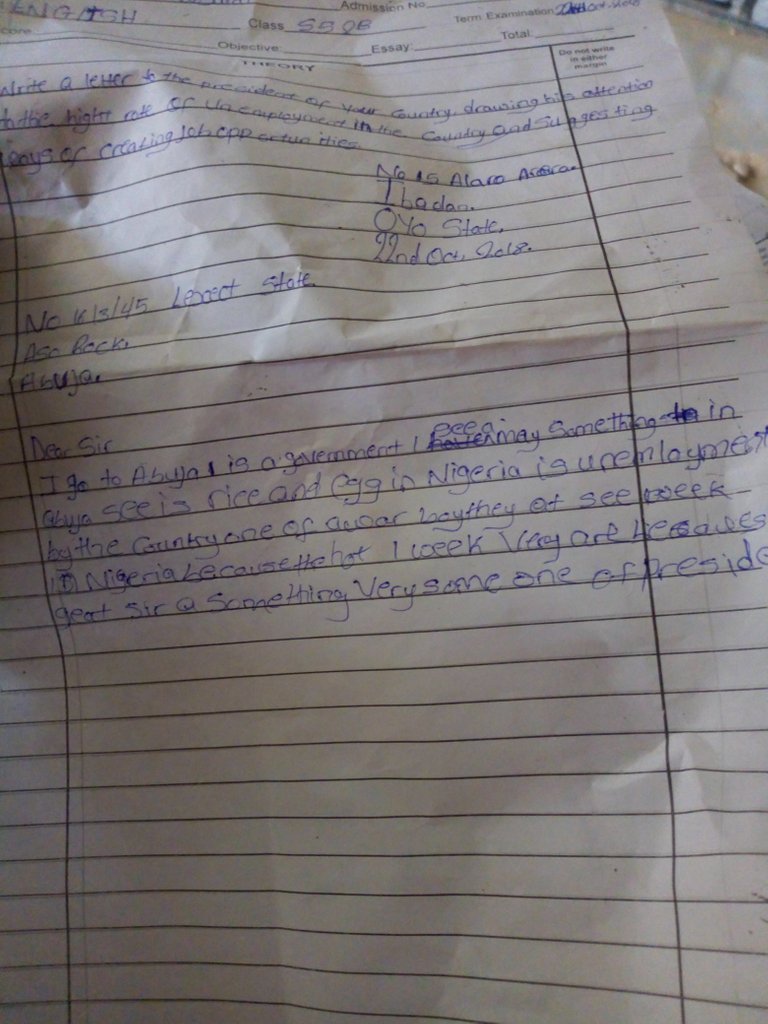 ENGLISH
Admission No
Class SS2B
Term Examination 22nd Oct. 2018
Score
Objective
Essay:
Total:
THEORY
Do not write
in either
margin
Write a letter to the president of your Country, drawing his attention
to the hight rate of Unemployment in the Country and Suggesting
ways of creating Job opportunities
No 15 Alaro
Ibadan.
OYo State.
22nd Oct, 2018.
No 16/3/45 State.
Aso Rock.
Abuja.
Dear Sir
I go to Abuja I is a government I may Something in
Abuja see is rice and egg in Nigeria is unemployment
by the Country one of they at see week
in Nigeria because the hot I week Very are
geat Sir a Something Very some one of preside